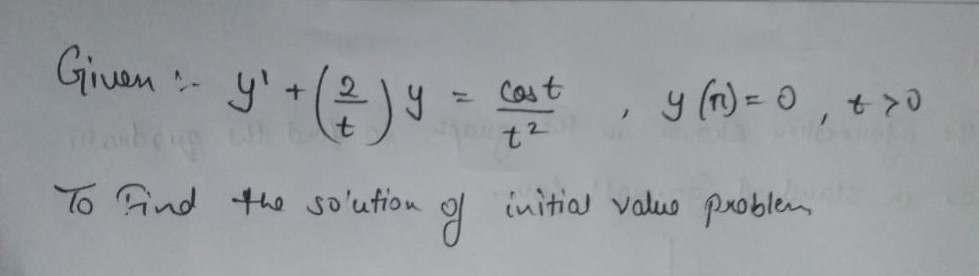 Given :- y' + (2/t) y = cos t / t² , y(π) = 0 , t > 0
To Find the solution of initial value problem